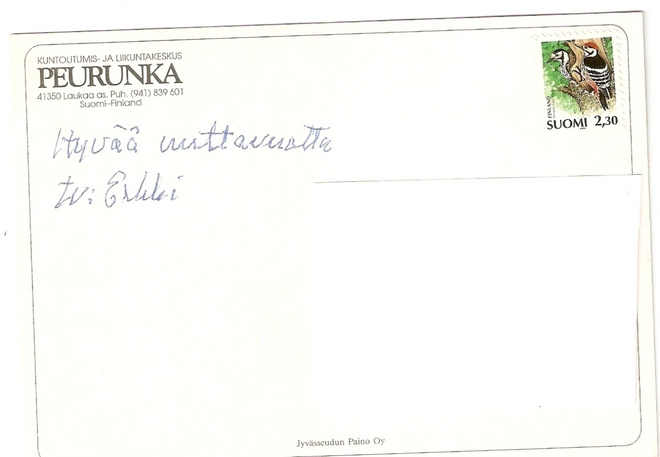 KUNTOUTUMIS- JA LIIKUNTAKESKUS
PEURUNKA
41350 Laukaa as. Puh. (941) 839 601
Suomi–Finland
FINLAND
SUOMI 2,30
Hyvää uuttavuotta
tv: Erkki
Jyvässeudun Paino Oy